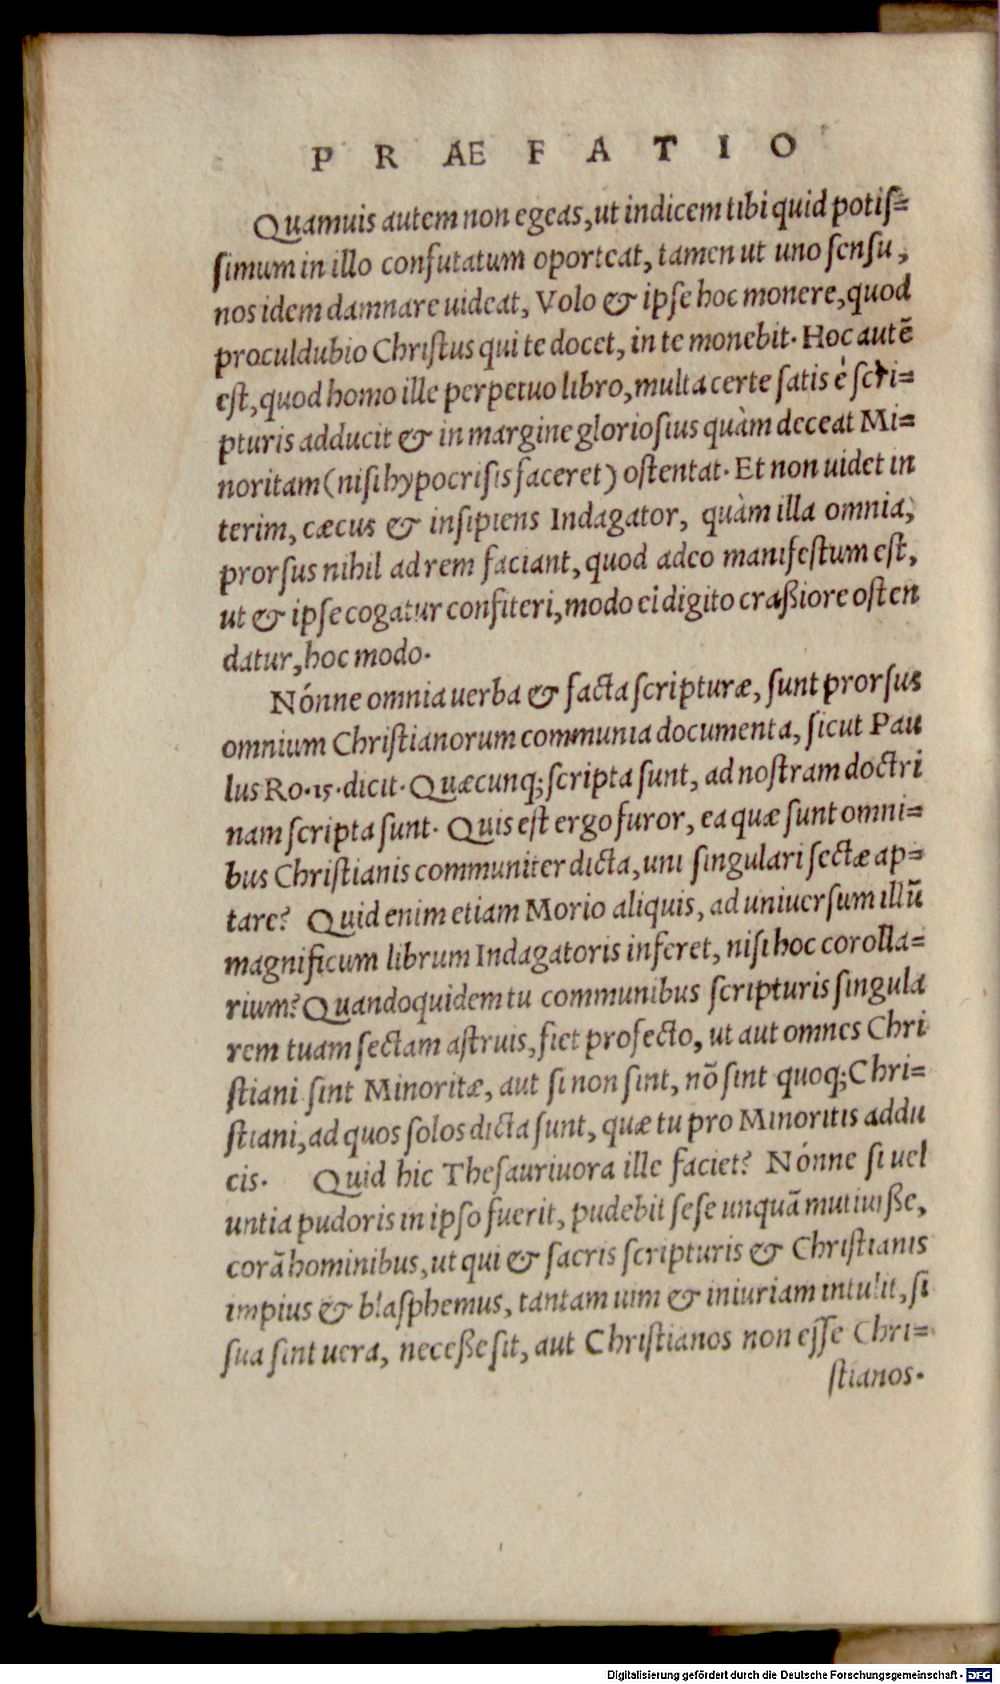 P R AE F A T I O
Quamuis autem non egeas, ut indicem tibi quid potiſ=
ſimum in illo confutatum oporteat, tamen ut uno ſenſu,
nos idem damnare uideat, Volo & ipſe hoc monere, quod
proculdubio Chriſtus qui te docet, in te monebit. Hoc autē
eſt, quod homo ille perpetuo libro, multa certe ſatis è ſcri=
pturis adducit & in margine glorioſius quàm deceat Mi=
noritam (niſi hypocriſis faceret) oſtentat. Et non uidet in
terim, cæcus & inſipiens Indagator, quàm illa omnia,
prorſus nihil ad rem faciant, quod adeo manifeſtum eſt,
ut & ipſe cogatur confiteri, modo ei digito craßiore oſten
datur, hoc modo.
Nónne omnia uerba & facta ſcripturæ, ſunt prorſus
omnium Chriſtianorum communia documenta, ſicut Pau
lus Ro. 15. dicit. Quæcunq; ſcripta ſunt, ad noſtram doctri
nam ſcripta ſunt. Quis eſt ergo furor, ea quæ ſunt omni=
bus Chriſtianis communiter dicta, uni ſingulari ſectæ ap=
tare? Quid enim etiam Morio aliquis, ad uniuerſum illū
magnificum librum Indagatoris inferet, niſi hoc corolla=
rium? Quandoquidem tu communibus ſcripturis ſingula
rem tuam ſectam aſtruis, fiet profecto, ut aut omnes Chri
ſtiani ſint Minoritæ, aut ſi non ſint, nō ſint quoq; Chri=
ſtiani, ad quos ſolos dicta ſunt, quæ tu pro Minoritis addu
cis. Quid hic Theſauriuora ille faciet? Nónne ſi uel
untia pudoris in ipſo fuerit, pudebit ſeſe unquā mutiuiße,
corā hominibus, ut qui & ſacris ſcripturis & Chriſtianis
impius & blaſphemus, tantam uim & iniuriam intulit, ſi
ſua ſint uera, neceße ſit, aut Chriſtianos non eſſe Chri=
ſtianos.
Digitalisierung gefördert durch die Deutsche Forschungsgemeinschaft - DFG